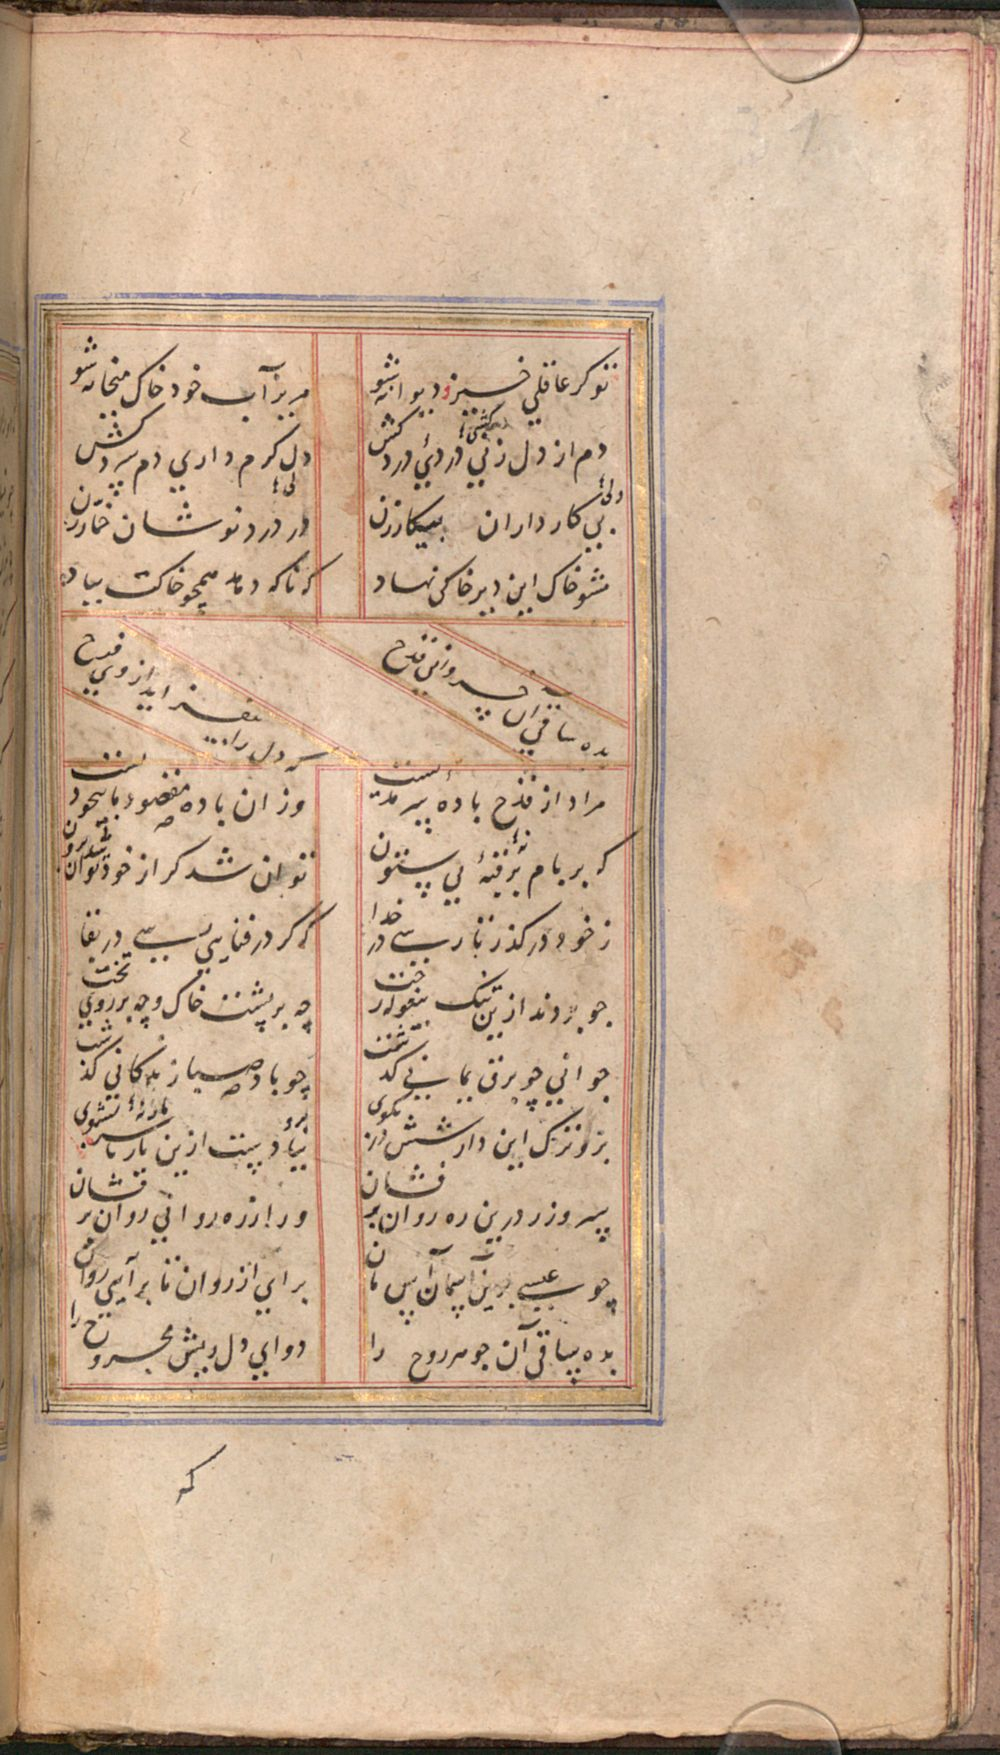 تو گر عاقلی خیز و دیوانه شو
مریز آب خود خاک میخانه شو
دم از دل زنی دردئ درد کش
دل گرم داری دم سرد کش
بی کارداران بیکار زن
در درد نوشان خمار زن
مشو خاک این دیر خاکی نهاد
که ناگه دهد همچو خاکت بباد
بده ساقی آن خسروانی قدح
که دل را بیفزاید از وی فرح
مراد از قدح باده سرمدیست
وزان باده مقصود ما بیخودیست
که بر بام نه قبه بی ستون
توان شد گر از خود توان شد برون
ز خود در گذر تا رسی در خدا
که گر در فنایی رسی در بقا
چو بردند ازین تنگ بیغوله رخت
چه بر پشت خاک و چه بر روی تخت
جوانی چو برق یمانی گذشت
چو باد صبا زندگانی گذشت
بزن ترک این دار شش در بگوی
پیروز در درین ره روان بر فشان
ور از ره روانی روان بر فشان
چو عیسی برین آسمان آسمان
برای از روان تا برآیی روان
بده ساقی آن جوهر روح را
دوای دل ریش مجروح را
که